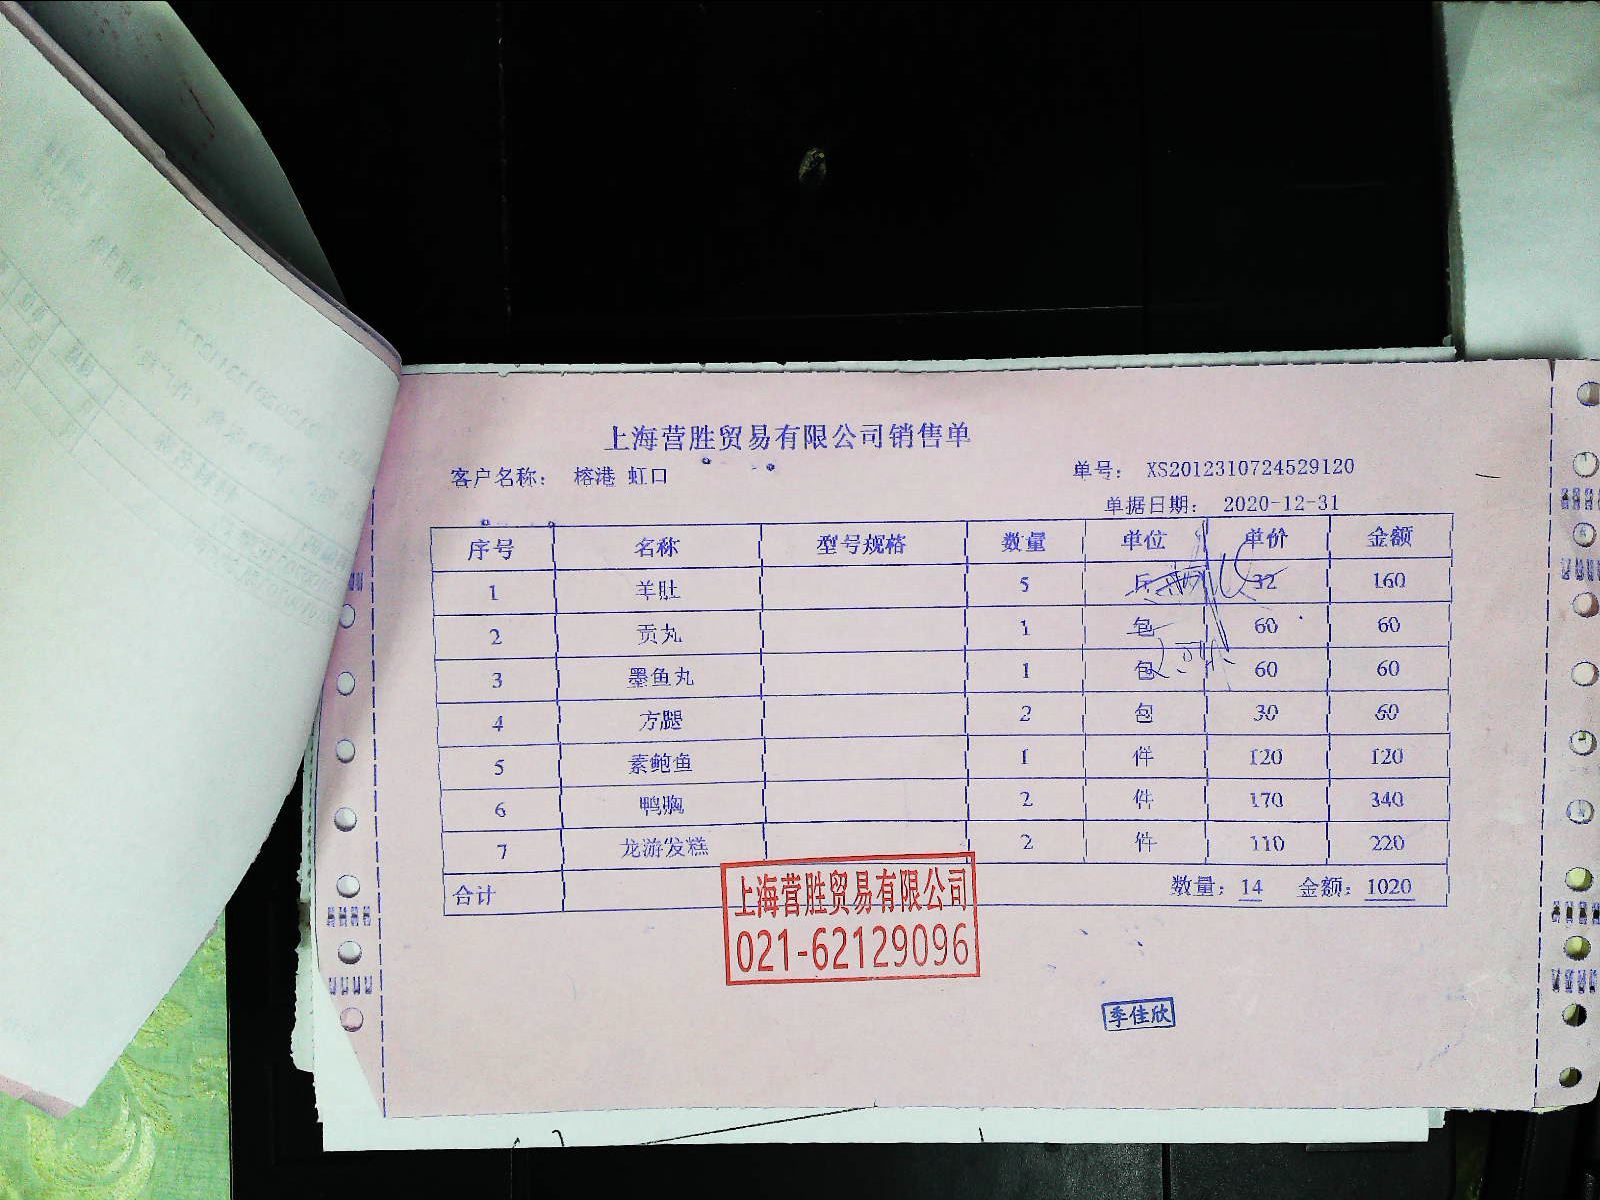 上海营胜贸易有限公司销售单
客户名称： 榕港 虹口 单号： XS2012310724529120
单据日期： 2020-12-31
序号 名称 型号规格 数量 单位 单价 金额
1 羊肚 5 斤 32 160
2 贡丸 1 包 60 60
3 墨鱼丸 1 包 60 60
4 方腿 2 包 30 60
5 素鲍鱼 1 件 120 120
6 鸭胸 2 件 170 340
7 龙游发糕 2 件 110 220
合计 数量：14 金额：1020
上海营胜贸易有限公司
021-62129096
季佳欣